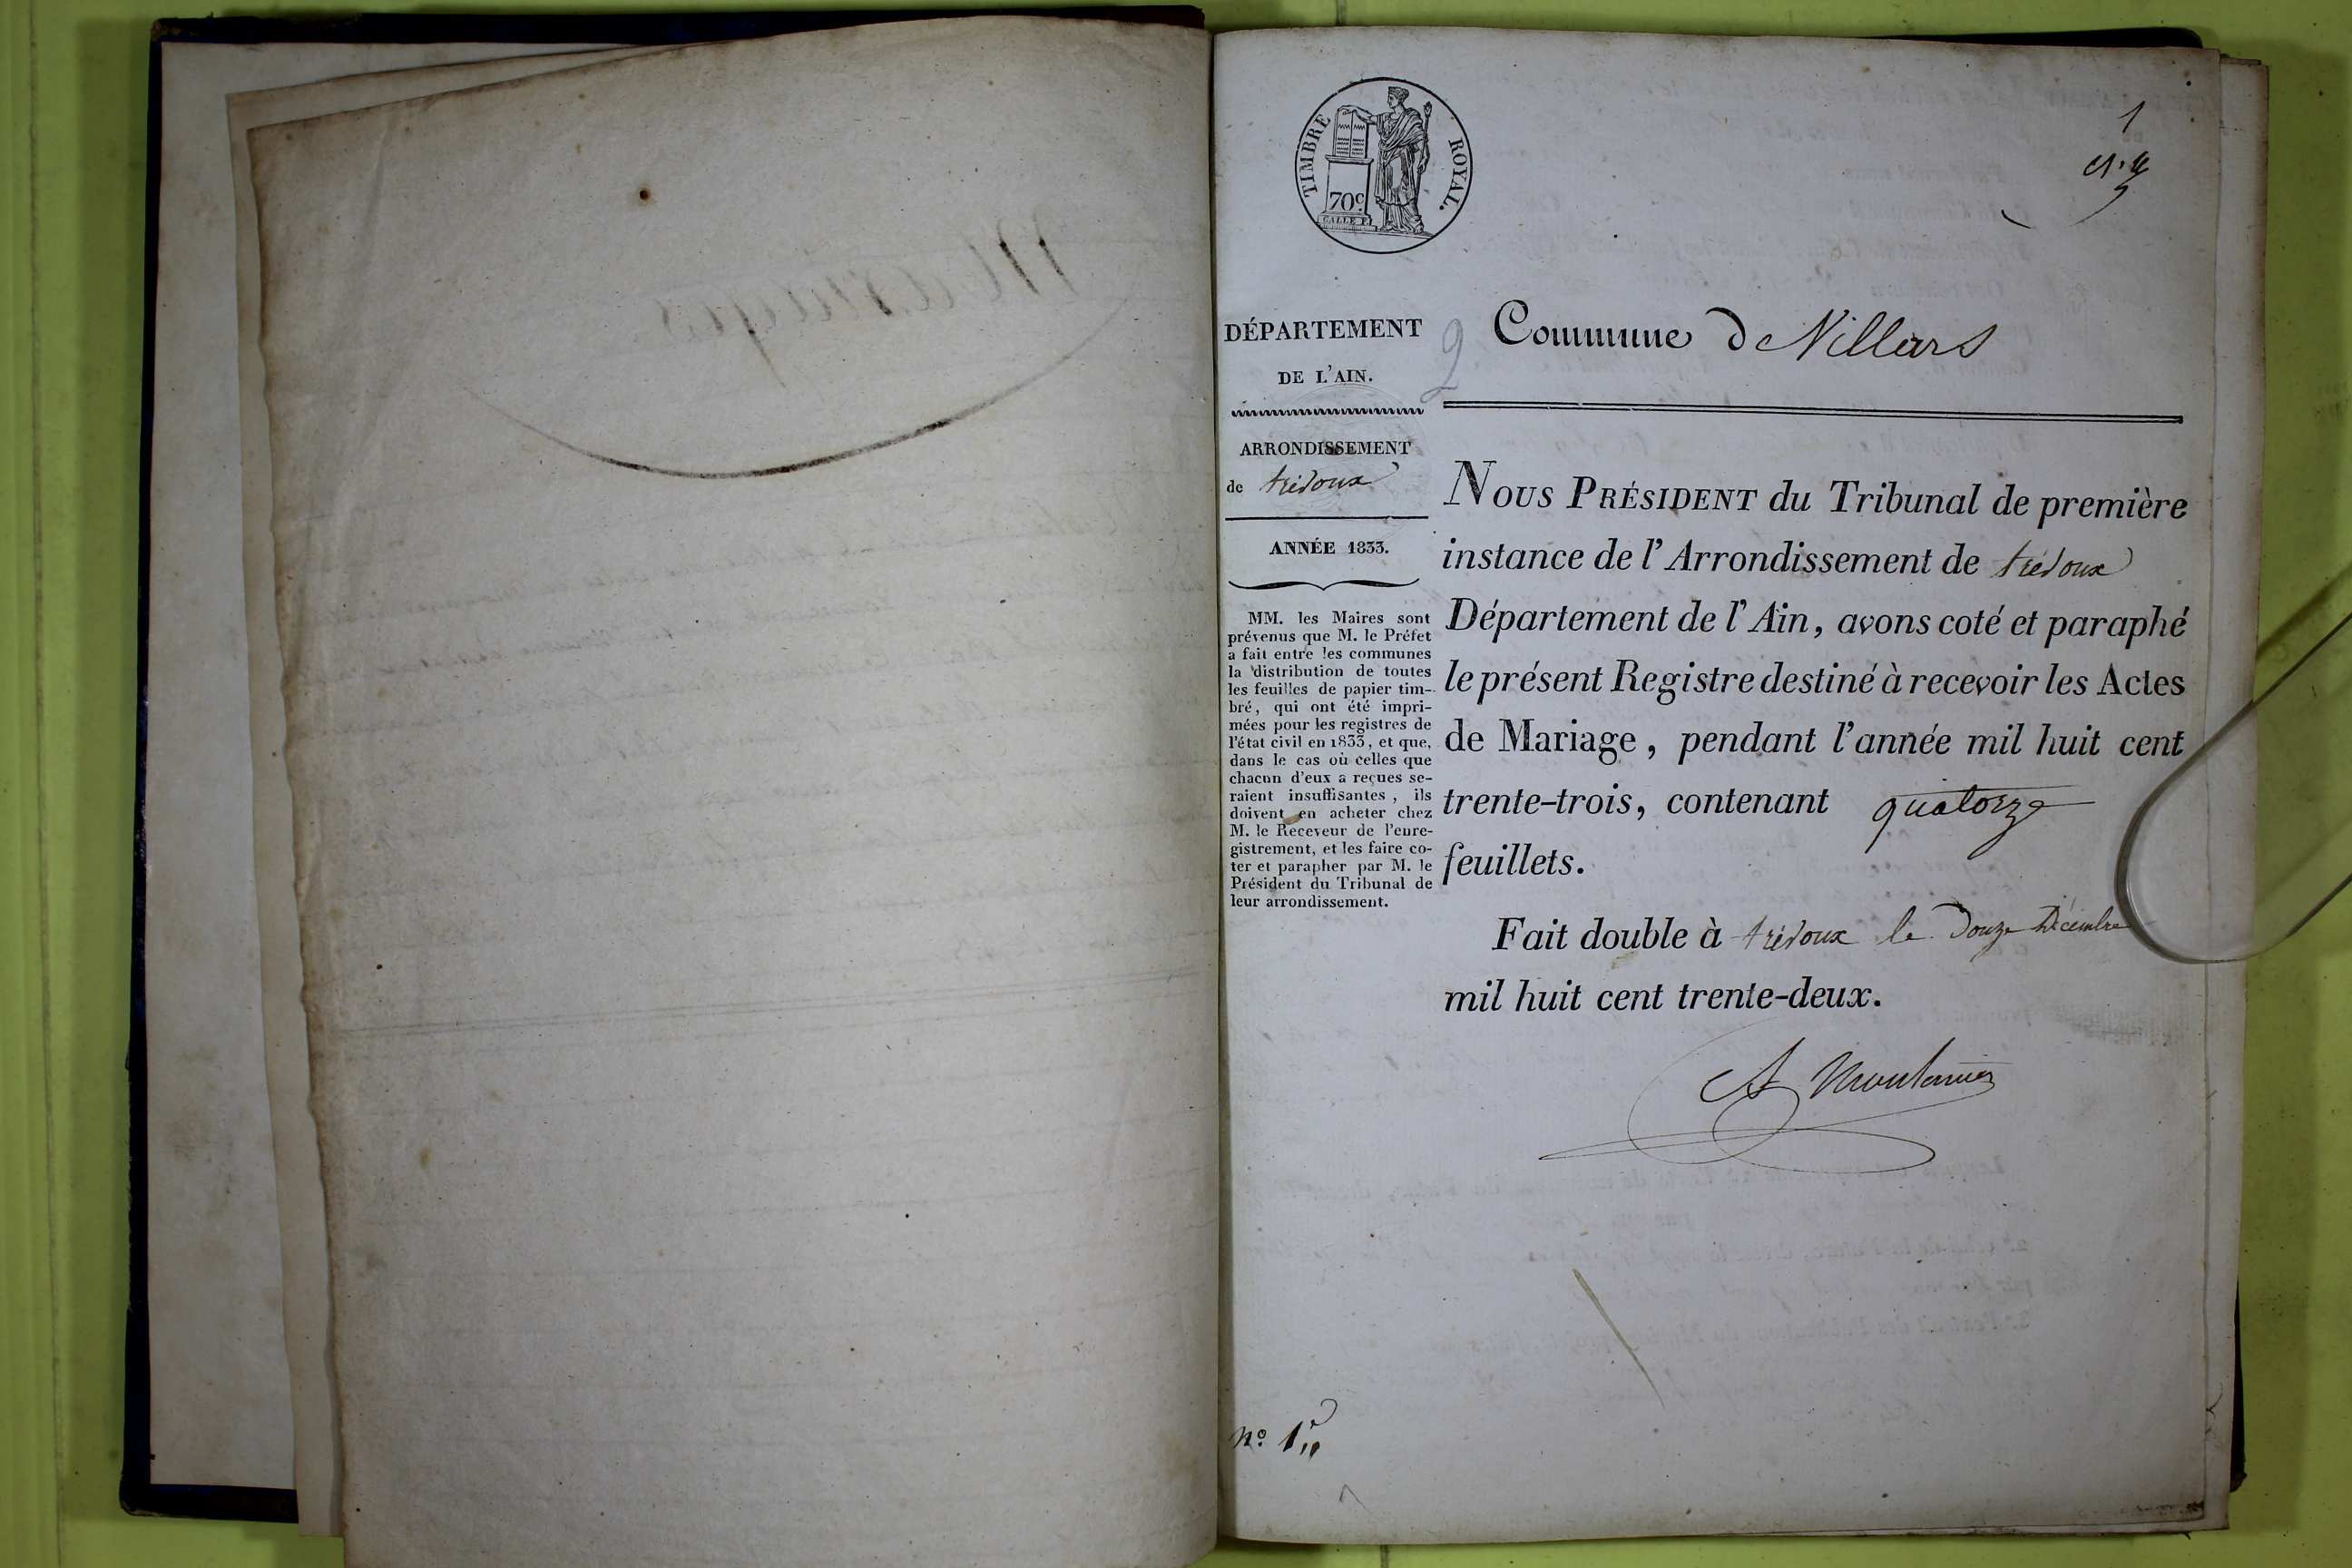 Mariages
TIMBRE ROYAL.
70c
1
DÉPARTEMENT
DE L'AIN.
ARRONDISSEMENT
de trévoux
ANNÉE 1833.
MM. les Maires sont
prévenus que M. le Préfet
a fait entre les communes
la distribution de toutes
les feuilles de papier tim-
bré, qui ont été impri-
mées pour les registres de
l'état civil en 1833, et que,
dans le cas où celles que
chacun d'eux a reçues se-
raient insuffisantes, ils
doivent en acheter chez
M. le Receveur de l'enre-
gistrement, et les faire co-
ter et parapher par M. le
Président du Tribunal de
leur arrondissement.
2
Commune de Villars
NOUS PRÉSIDENT du Tribunal de première
instance de l'Arrondissement de trévoux
Département de l'Ain, avons coté et paraphé
le présent Registre destiné à recevoir les Actes
de Mariage, pendant l'année mil huit cent
trente-trois, contenant quatorze
feuillets.
Fait double à trévoux le Douze Décembre
mil huit cent trente-deux.
no. 1er